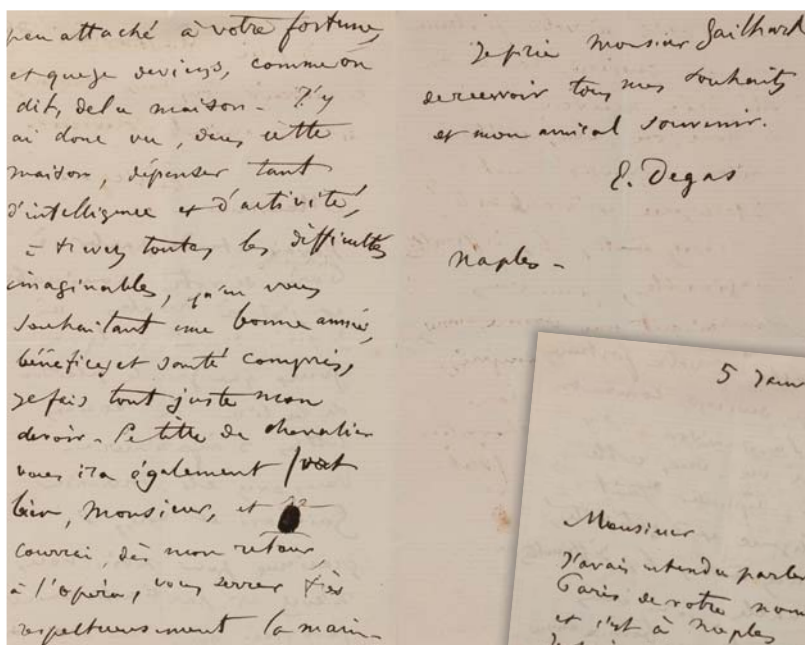 peu attaché à votre fortune,
et que je deviens, comme on
dit, de la maison - J'y
ai donc vu, dans cette
maison, dépenser tant
d'intelligence et d'activité,
à travers toutes les difficultés
imaginables, qu'en vous
souhaitant une bonne année,
bénéfices et santé compris,
je fais tout juste mon
devoir - Le titre de chevalier
vous ira également fort
bien, Monsieur, et
courrai, dès mon retour,
à l'opéra, vous serrer très
respectueusement la main -
Je prie Monsieur Gailhard
de recevoir tous mes souhaits
et mon amical souvenir.
E. Degas
Naples -
5 Janv
Monsieur
J'avais entendu parler
Paris de votre nom
et c'est à Naples